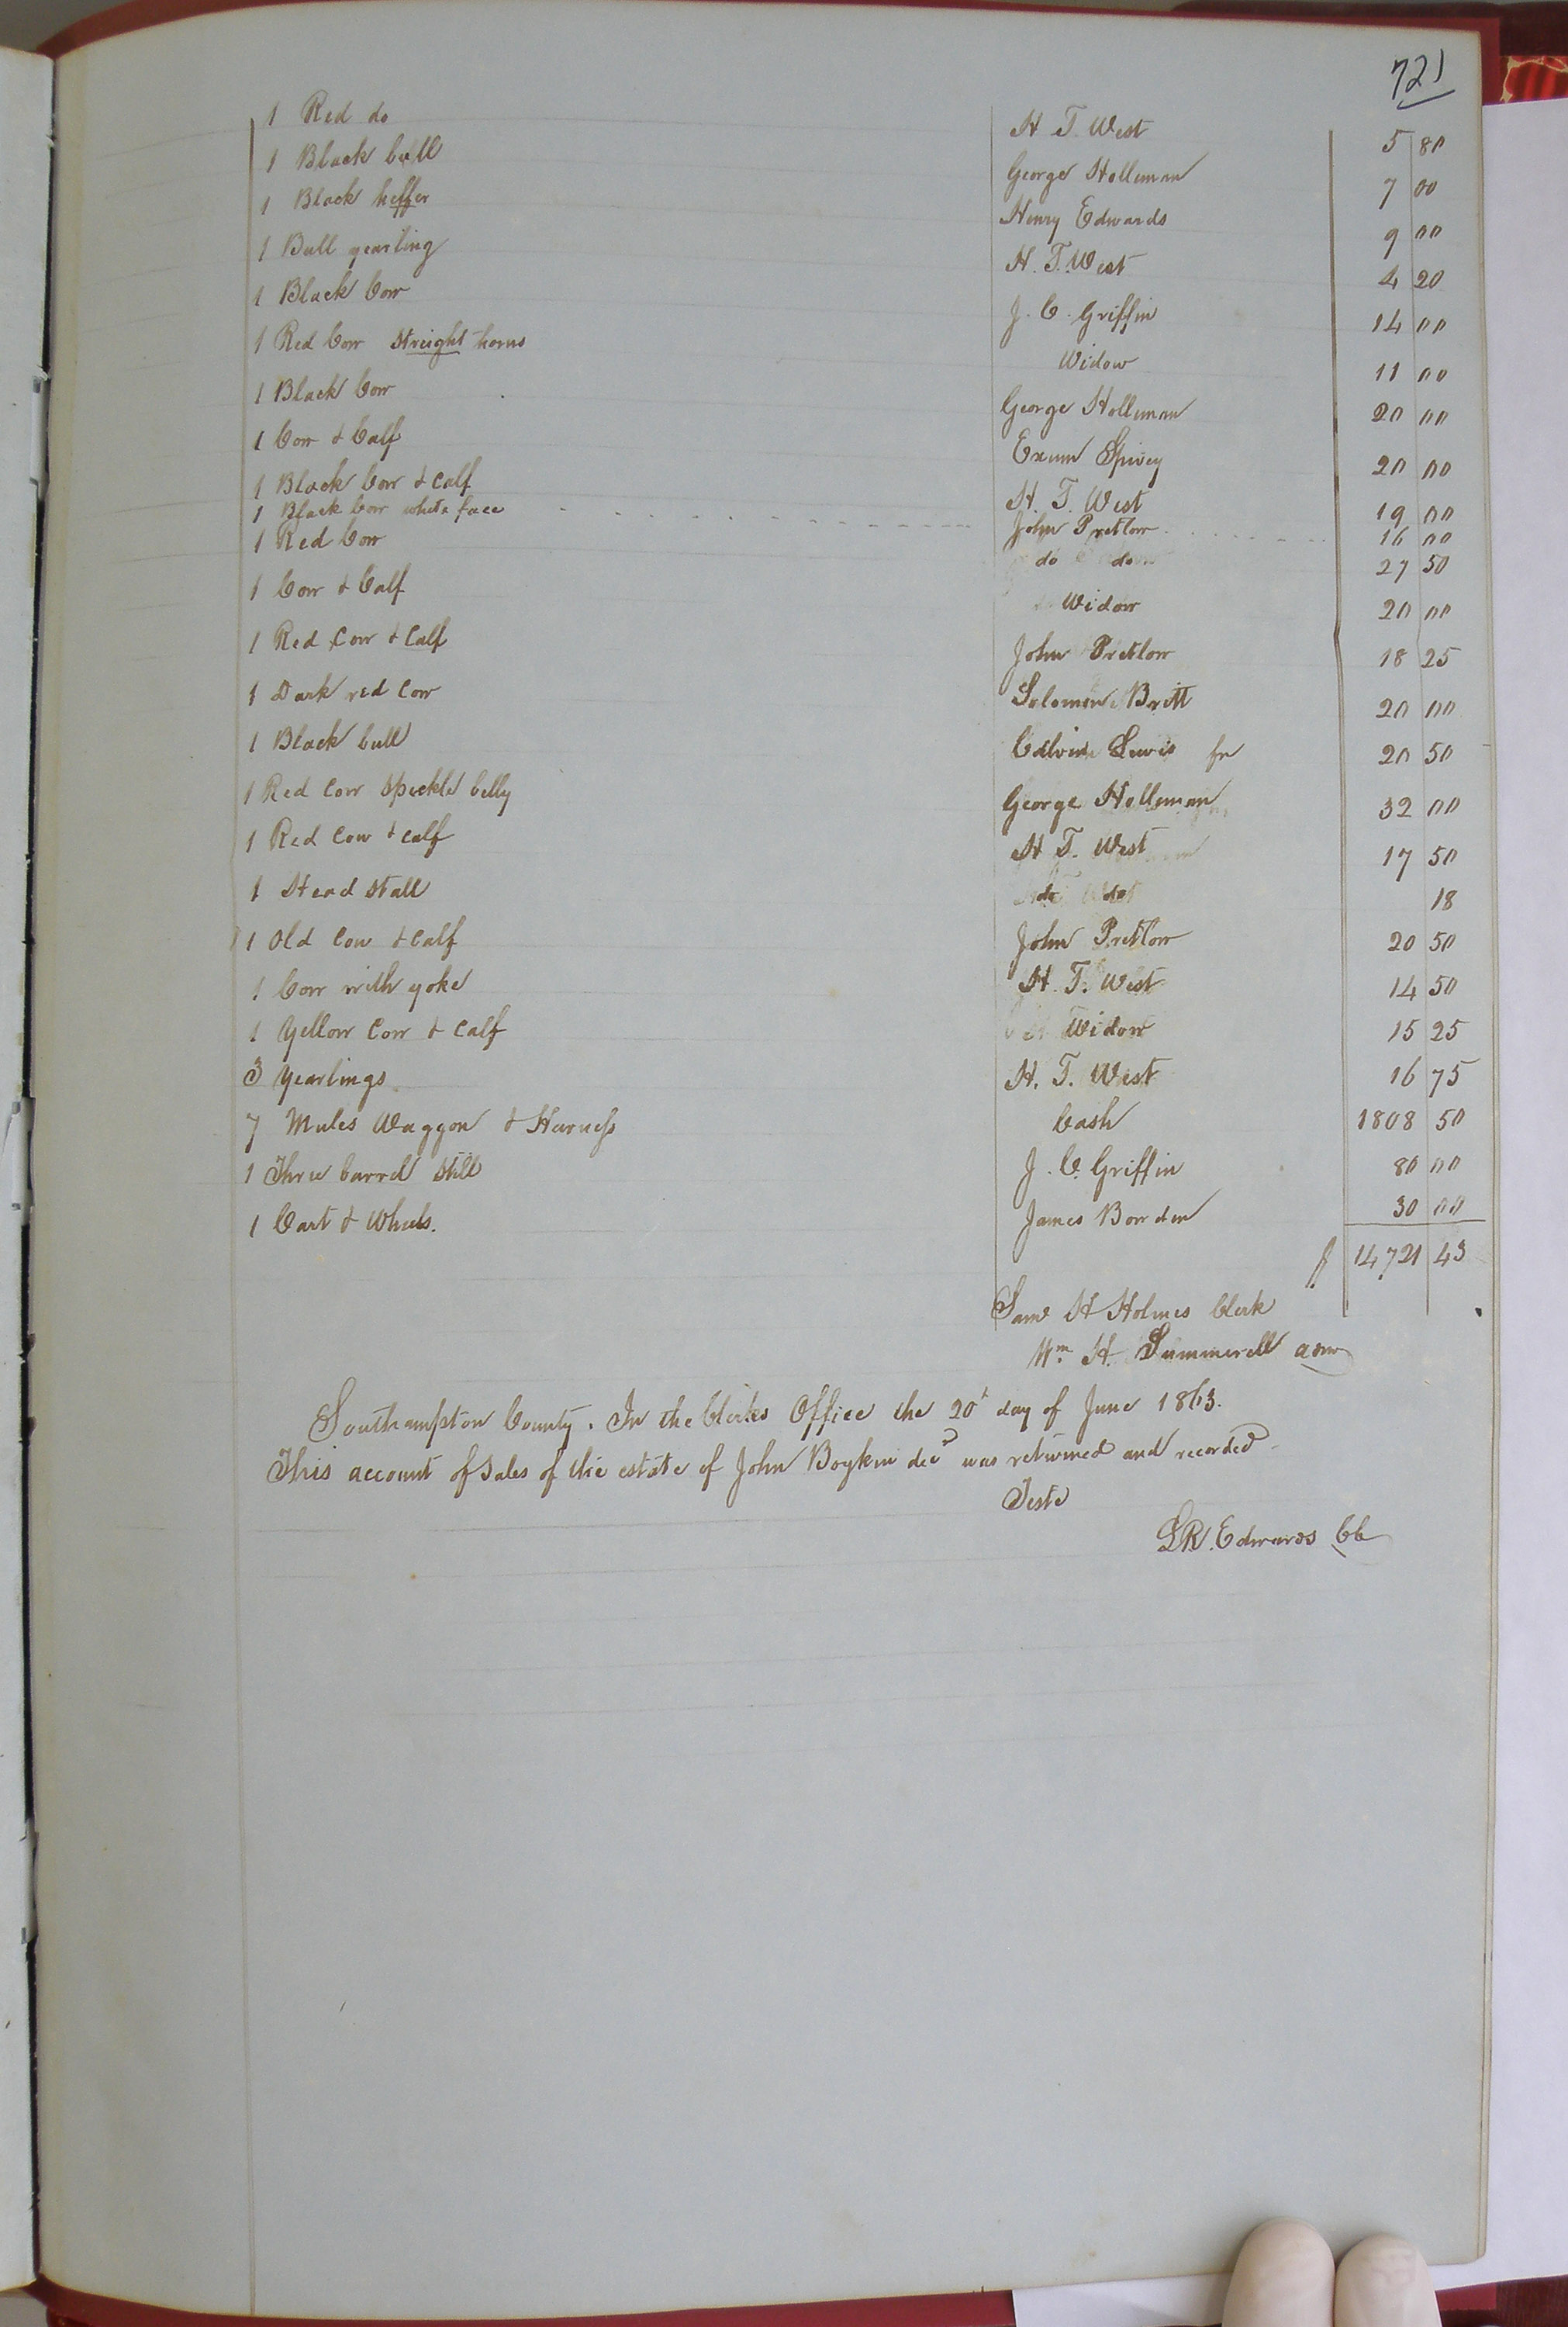 721
1 Red do H. T. West 5 80
1 Black bull George Holleman 7 00
1 Black heffer Henry Edwards 9 00
1 Bull yearling H. T. West 4 20
1 Black Cow J. C. Griffin 14 00
1 Red Cow streight horns Widow 11 00
1 Black Cow George Holleman 20 00
1 Cow & Calf Exum Spivey 20 00
1 Black Cow & calf H. T. West 19 00
1 Black Cow white face John Pretlow 16 00
1 Red Cow do do 27 50
1 Cow & Calf Widow 20 00
1 Red Cow & Calf John Pretlow 18 25
1 Dark red Cow Solomon Britt 20 00
1 Black bull Edwin Lewis 20 50
1 Red Cow Speckle belly George Holleman 32 00
1 Red Cow & calf H T. West 17 50
1 Head stall do do 18
1 Old Cow & Calf John Pretlow 20 50
1 Cow with yoke H. T. West 14 50
1 Yellow Cow & Calf Widow 15 25
3 Yearlings H. T. West 16 75
7 Mules Waggon & Harness Cash 1808 50
1 Three barrel still J. C. Griffin 80 00
1 Cart & Wheels. James Bowden 30 00
$ 14721 43
Saml H Holmes Clerk
Wm H. Summerell adm
Southampton County. In the Clerks Office the 20t day of June 1863.
This account of Sales of the estate of John Boykin decd was returned and recorded
Teste
L R. Edwards CC